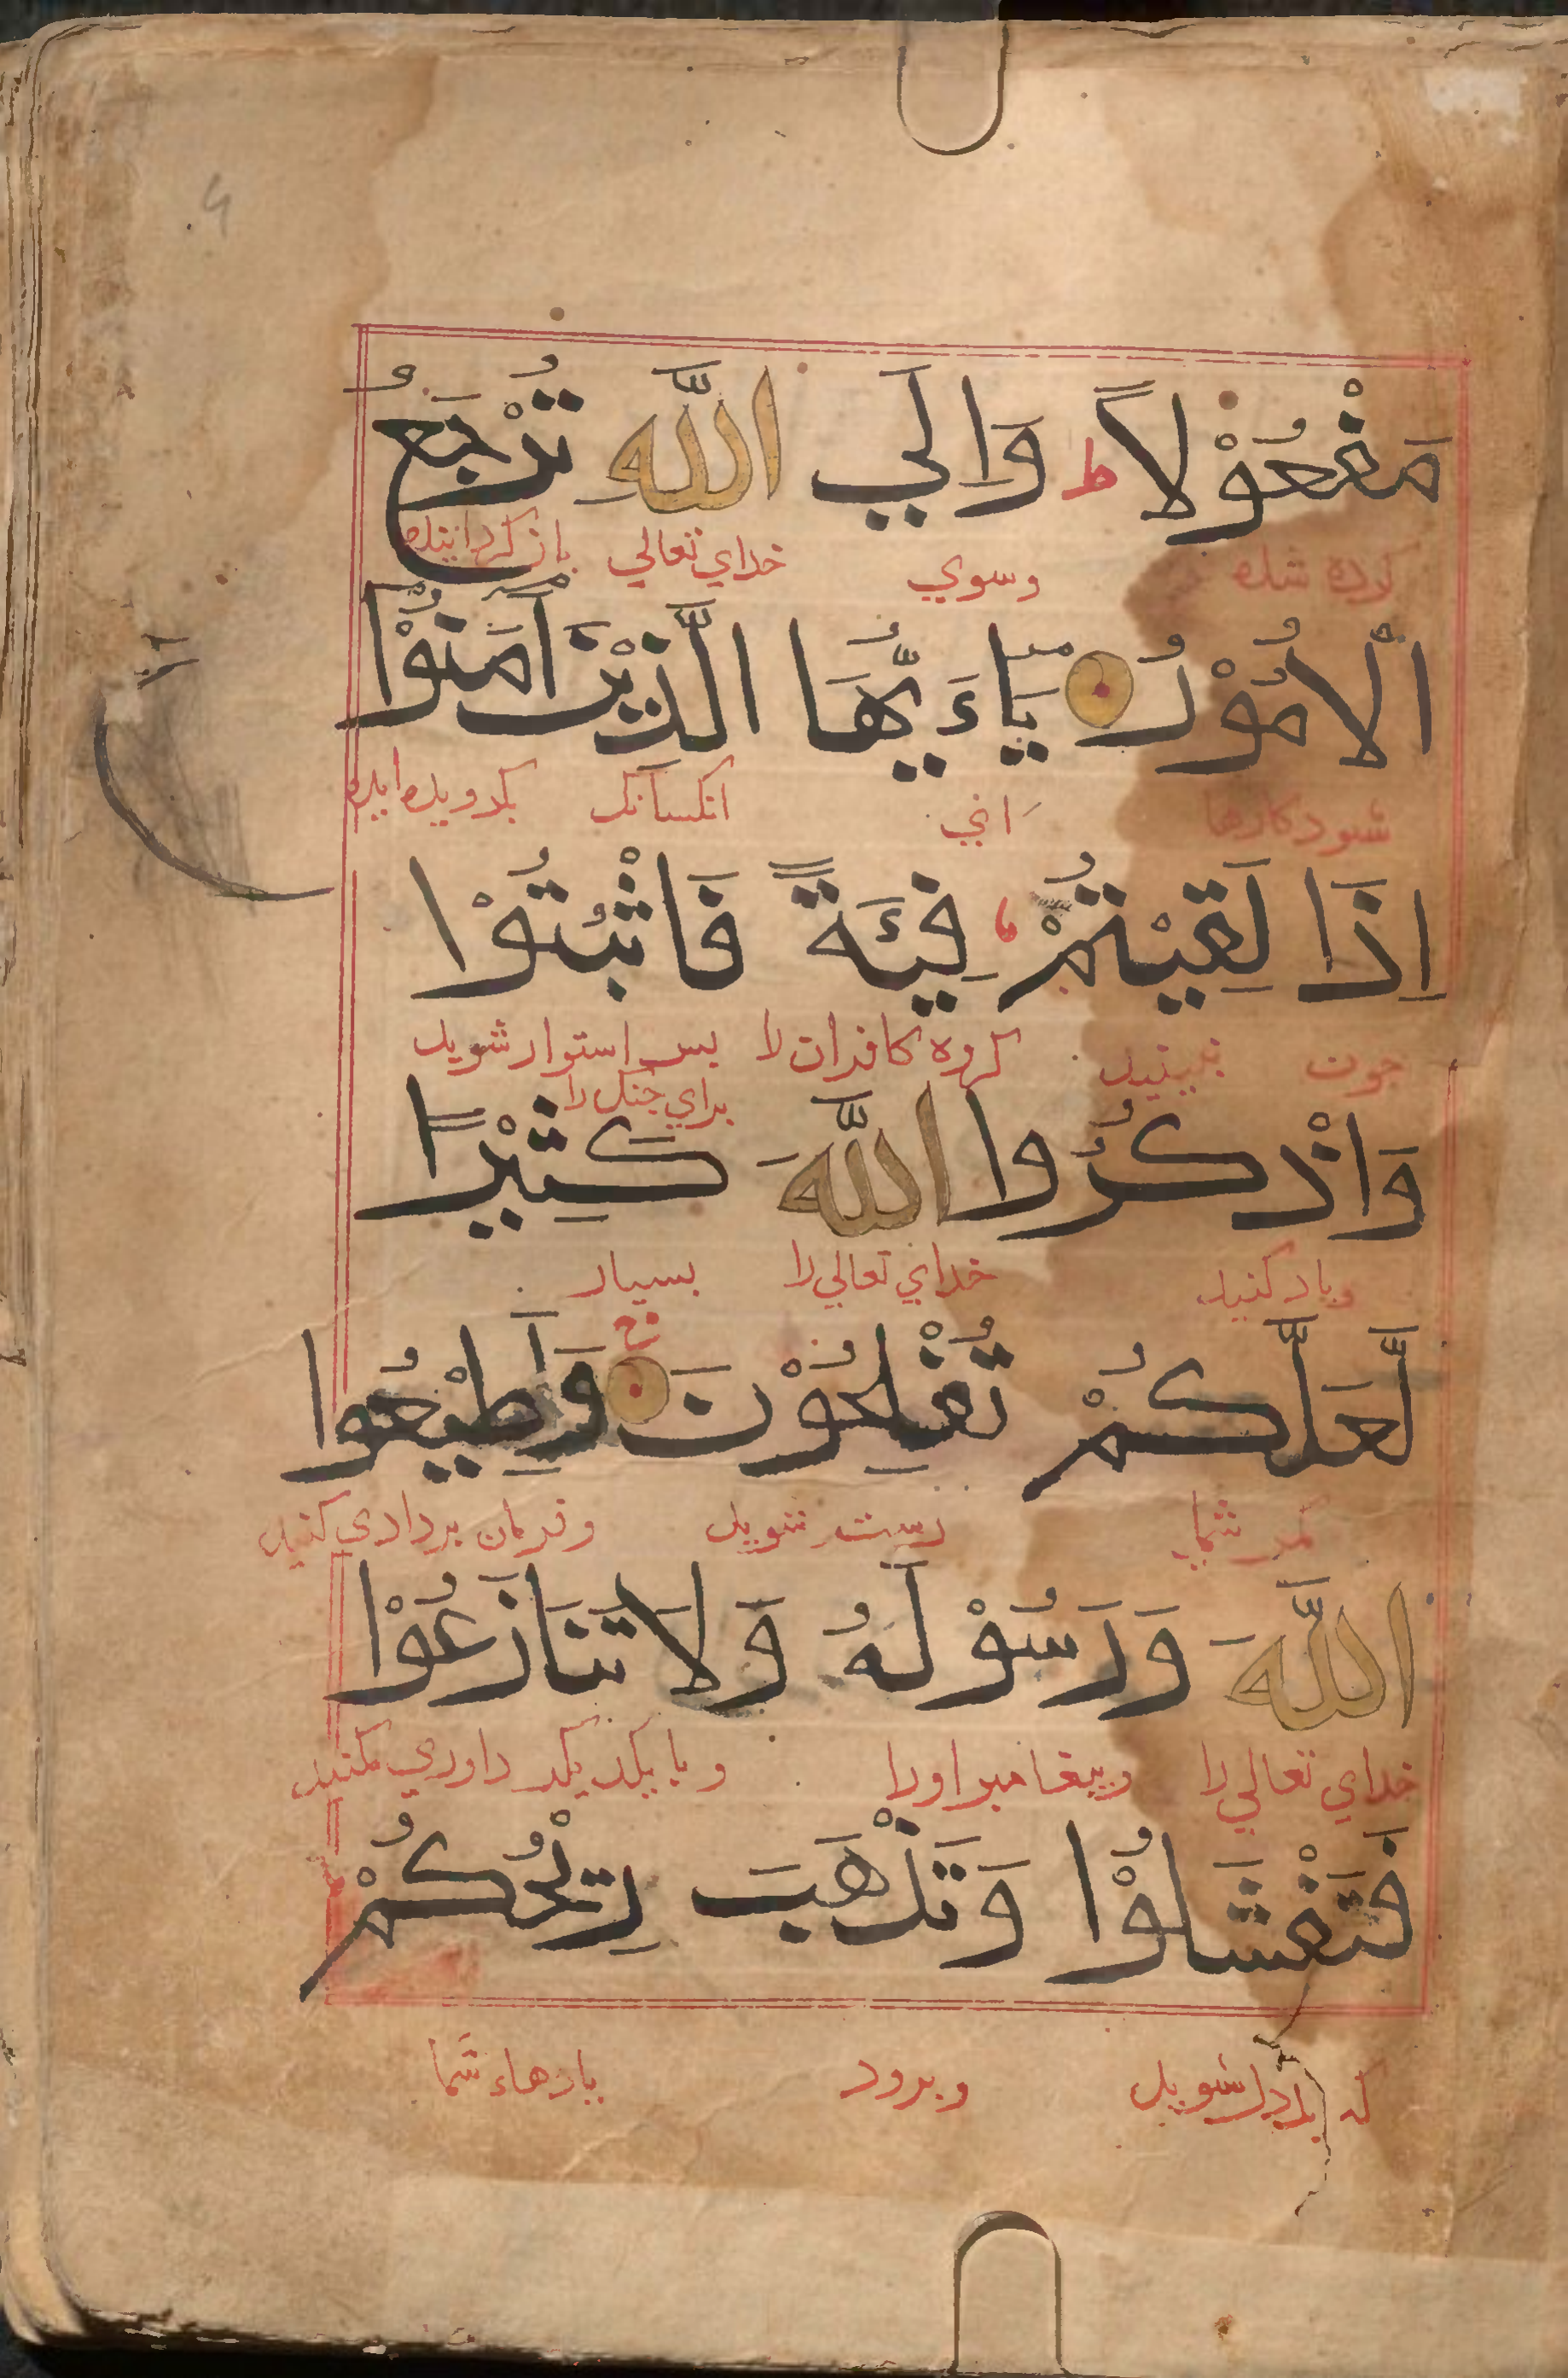 مَفْعُوْلًا ط وَاِلَي اللّٰهِ تُرْجَعُ
کرده شده وسوي خداي تعالي باز کردانیده
اْلاُمُوْرُ يَاءَيُّهَا الَّذِيْنَ آمَنُوْا
شود کارها اني انکسانک بکرویده ایده
اِذَا لَقِيْتُمْ فِئَةً فَاثْبُتُوْا
جون ببینید کروه کافران را بس استوار شوید
براي جنک را
وَاذْكُرُوا اللّٰهَ كَثِيْرًا
ویاد کنید خداي تعالي را بسیار
لَّعَلَّكُمْ تُفْلِحُوْنَ وَاَطِيْعُوا
مکر شما رسته شوید وفرمان برداري کنید
اللّٰهَ وَرَسُوْلَهُ وَلَا تَنَازَعُوْا
خداي تعالي را وبیغامبر اورا وبا یکدیکر داوري مکنید
فَتَفْشَلُوْا وَتَذْهَبَ رِيْحُكُمْ
که بددل شوید وبرود بادهاء شما